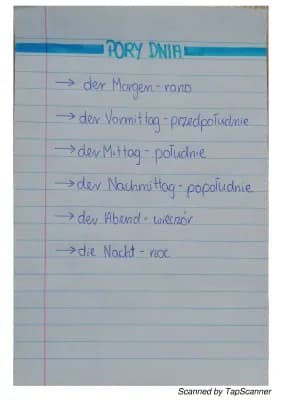 PORY DNIA
→ der Morgen - rano
→ der Vormittag - przedpołudnie
→ der Mittag - południe
→ der Nachmittag - popołudnie
→ der Abend - wieczór
→ die Nacht - noc
Scanned by TapScanner